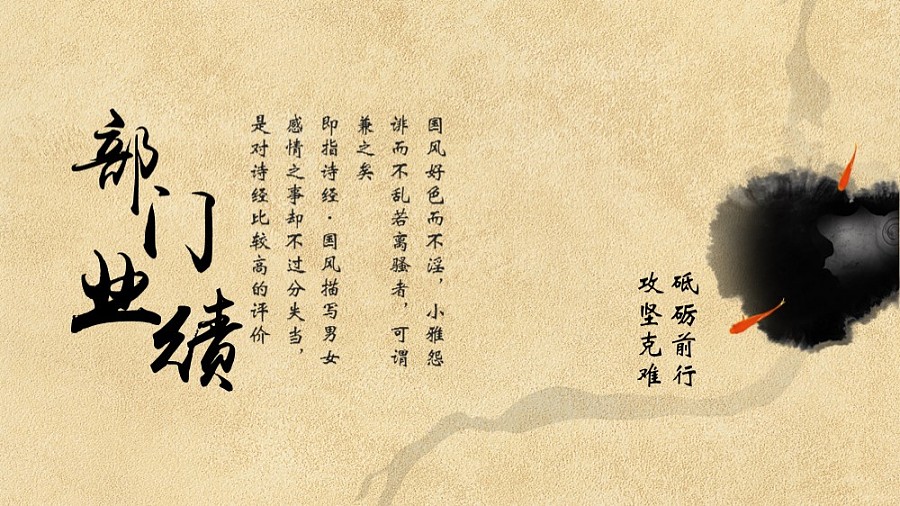 部门业绩
国风好色而不淫，小雅怨
诽而不乱若离骚者，可谓
兼之矣
即指诗经·国风描写男女
感情之事却不过分失当，
是对诗经比较高的评价
砥砺前行
攻坚克难